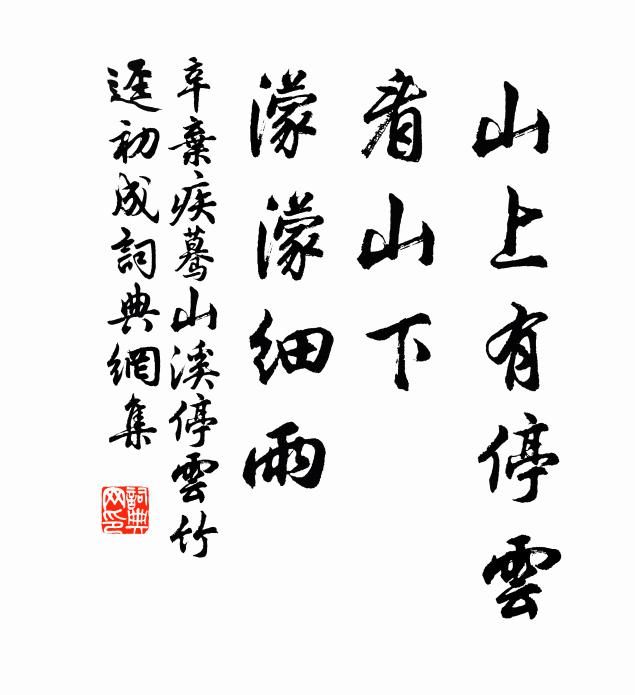 山上有停雲
看山下
濛濛細雨
辛棄疾驀山溪停雲竹
逕初成詞典網集
詞典网印